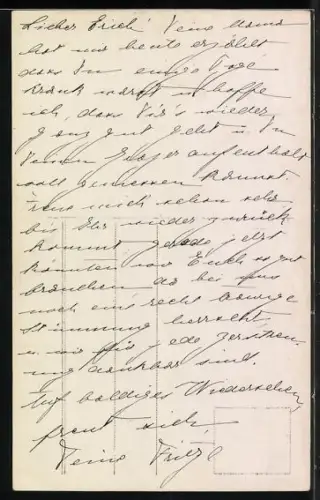 Lieber Erich! Deine Mama
hat uns heute erzählt
dass Du einige Tage
krank warst u. hoffe
ich, dass Dir's wieder
ganz gut geht u. Du
Deinen aufenthalt
voll geniessen kannst.
Freue mich schon sehr
bis Ihr wieder zurück
kommt. gerade jetzt
könnten wir Euch so gut
brauchen da bei uns
noch eine recht traurige
Stimmung herrscht
u. wir für jede Zerstreu-
ung dankbar sind.
Auf baldiges Wiedersehen,
freut sich,
Deine Fritzl